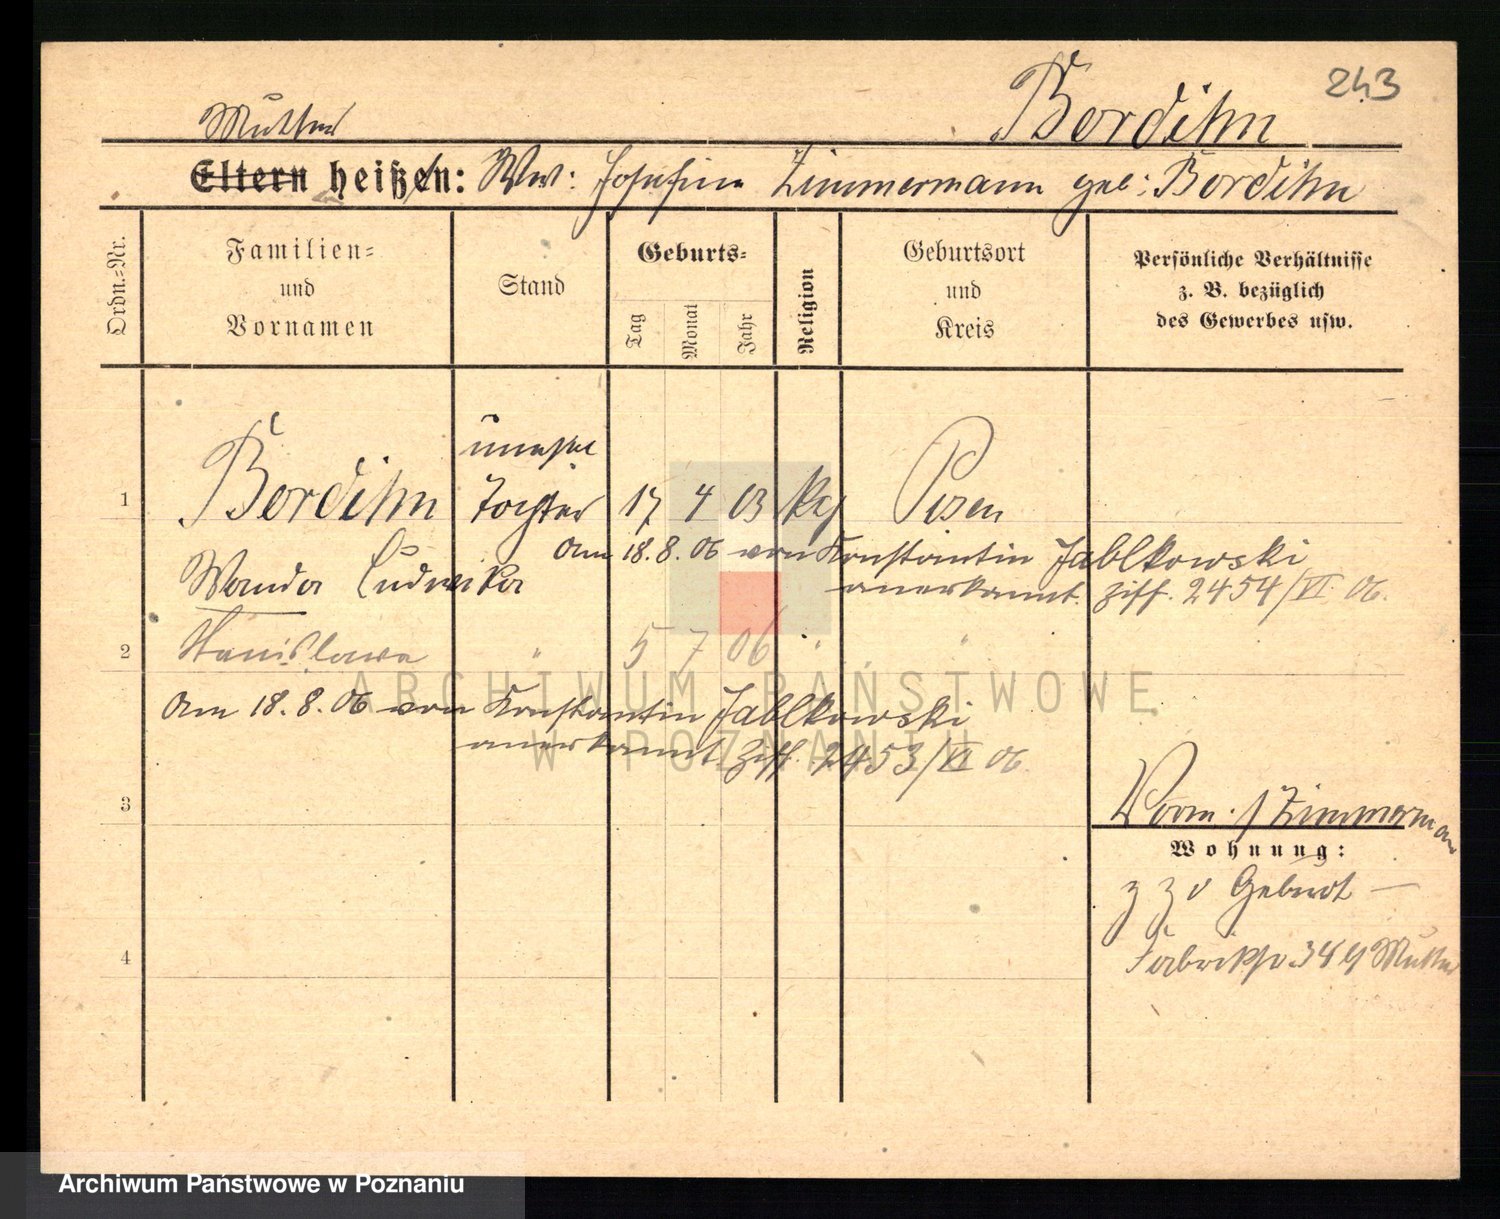 243
Bordihn
Mutter
Eltern heißen: Ww: Josefine Zimmermann geb: Bordihn
Ordn.-Nr.
Familien-
und
Vornamen
Stand
Geburts-
Tag
Monat
Jahr
Religion
Geburtsort
und
Kreis
Persönliche Verhältnisse
z. B. bezüglich
des Gewerbes usw.
unehel
1 Bordihn Tochter 17 4 03 Posen
am 18.8.06 von Konstantin Jablkowski
Wanda Ludwika
anerkannt. Ziff. 2454/VI 06.
2 Stanislawa " 5 7 06 " "
Am 18.8.06 von Konstantin Jablkowski
anerkannt Ziff. 2453/VI 06.
3
Vorm. Zimmermann
Wohnung:
z Z d Geburt —
4
Mutter
ARCHIWUM PAŃSTWOWE
W POZNANIU
Archiwum Państwowe w Poznaniu